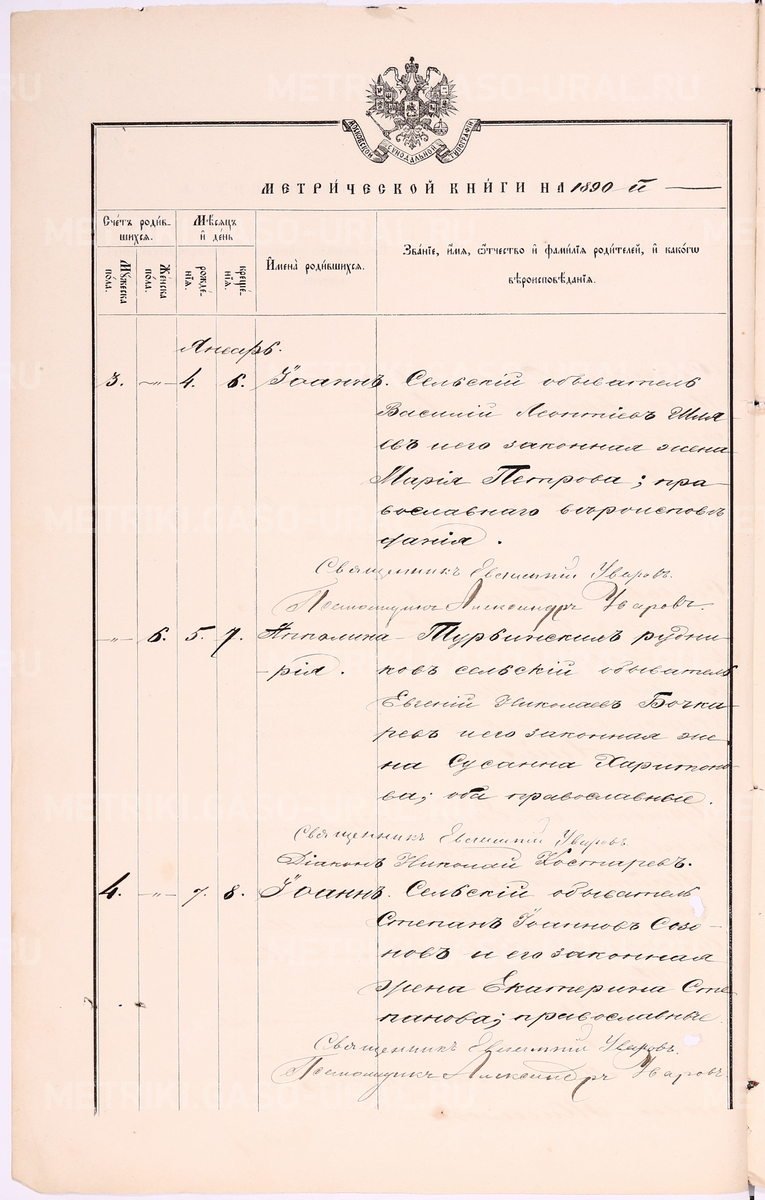 МОСКОВСКОЙ СѴНОДАЛЬНОЙ ТИПОГРАФІИ
МЕТРИ́ЧЕСКОЙ КНИ́ГИ НА 1890 й
Сче́тъ роди́в-
шихся.
Мѣсяцъ
и҆ де́нь
И҆мена̀ роди́вшихся.
Зва́нїе, и҆́мя, ѻ҆́тчество и҆ фами́лїя роди́телей, и҆ како́гѡ
вѣроисповѣ́данїя.
Мꙋ́жеска
по́ла.
Же́нска
по́ла.
рожде́-
нїя.
креще́-
нїя.
Январь.
3. — „ — 4. 6. Іоаннъ. Сельскій обыватель
Василій Леонтіевъ Шля
евъ и его законная жена
Марія Петрова; пра-
вославнаго вѣроисповѣ
данія.
Священникъ Евѳимій Уваровъ.
Псаломщикъ Александръ Уваровъ.
— „ — 6. 5. 7. Апполина- Турьинскихъ рудни-
-рія. ковъ сельскій обыватель
Евгеній Николаевъ Бочка-
ревъ и его законная же-
на Сусанна Харитоно-
ва; оба православные.
Священникъ Евѳимій Уваровъ
Діаконъ Николай Костаревъ.
4. — „ — 7. 8. Іоаннъ. Сельскій обыватель
Степанъ Іоанновъ Созо-
новъ и его законная
жена Екатерина Сте-
панова; православные.
Священникъ Евѳимій Уваровъ.
Псаломщикъ Александръ Уваровъ.
METRIKI.GASO-URAL.RU